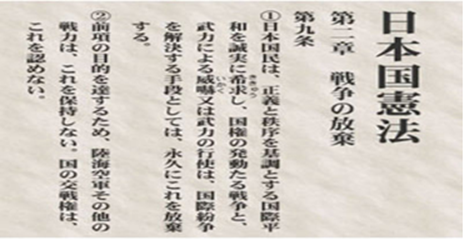 日本国憲法
第二章　戦争の放棄
第九条
①日本国民は、正義と秩序を基調とする国際平
和を誠実に希求し、国権の発動たる戦争と、
武力による威嚇又は武力の行使は、国際紛争
を解決する手段としては、永久にこれを放棄
する。
②前項の目的を達するため、陸海空軍その他の
戦力は、これを保持しない。国の交戦権は、
これを認めない。